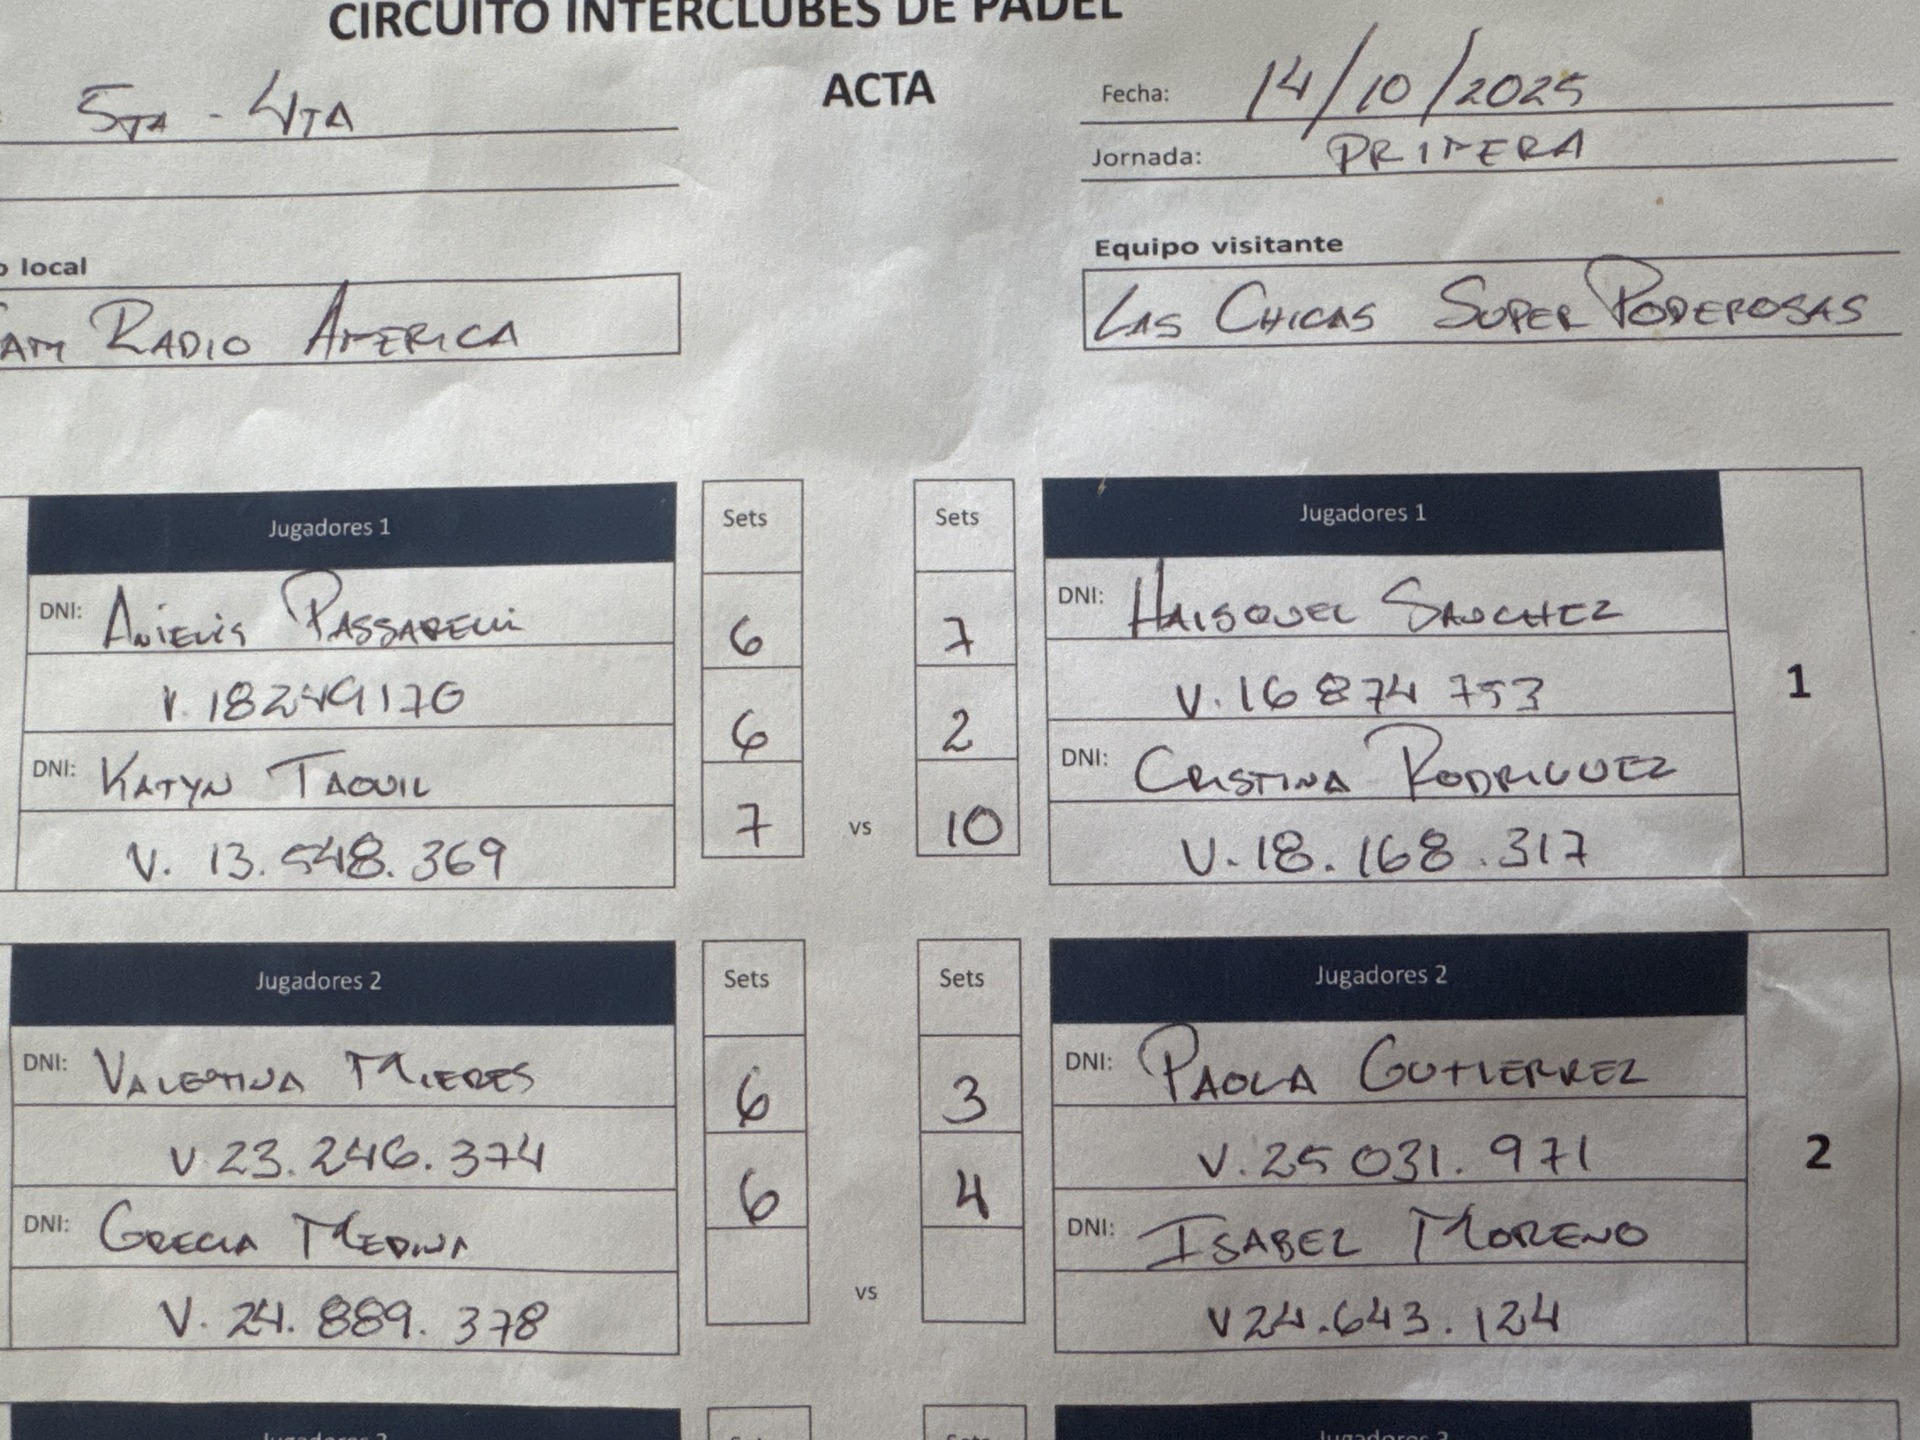 CIRCUITO INTERCLUBES DE PADEL
5TA - 4TA
ACTA
Fecha: 14/10/2025
Jornada: PRIMERA
o local
Equipo visitante
RADIO AMERICA
LAS CHICAS SUPER PODEROSAS
Jugadores 1
Sets
Sets
Jugadores 1
DNI: ANIELIS PASSARELLI
6
7
DNI: HAISQUEL SANCHEZ
V. 18249170
V. 16 874 753
1
6
2
DNI: KATYN TAOUIL
DNI: CRISTINA RODRIGUEZ
7
vs
10
V. 13.548.369
V. 18.168.317
Jugadores 2
Sets
Sets
Jugadores 2
DNI: VALENTINA MIERES
6
3
DNI: PAOLA GUTIERREZ
V 23.246.374
V. 25 031. 971
2
6
4
DNI: GRECIA MEDINA
DNI: ISABEL MORENO
vs
V. 24. 889. 378
V 24.643.124
Sets
Sets
Jugadores 3